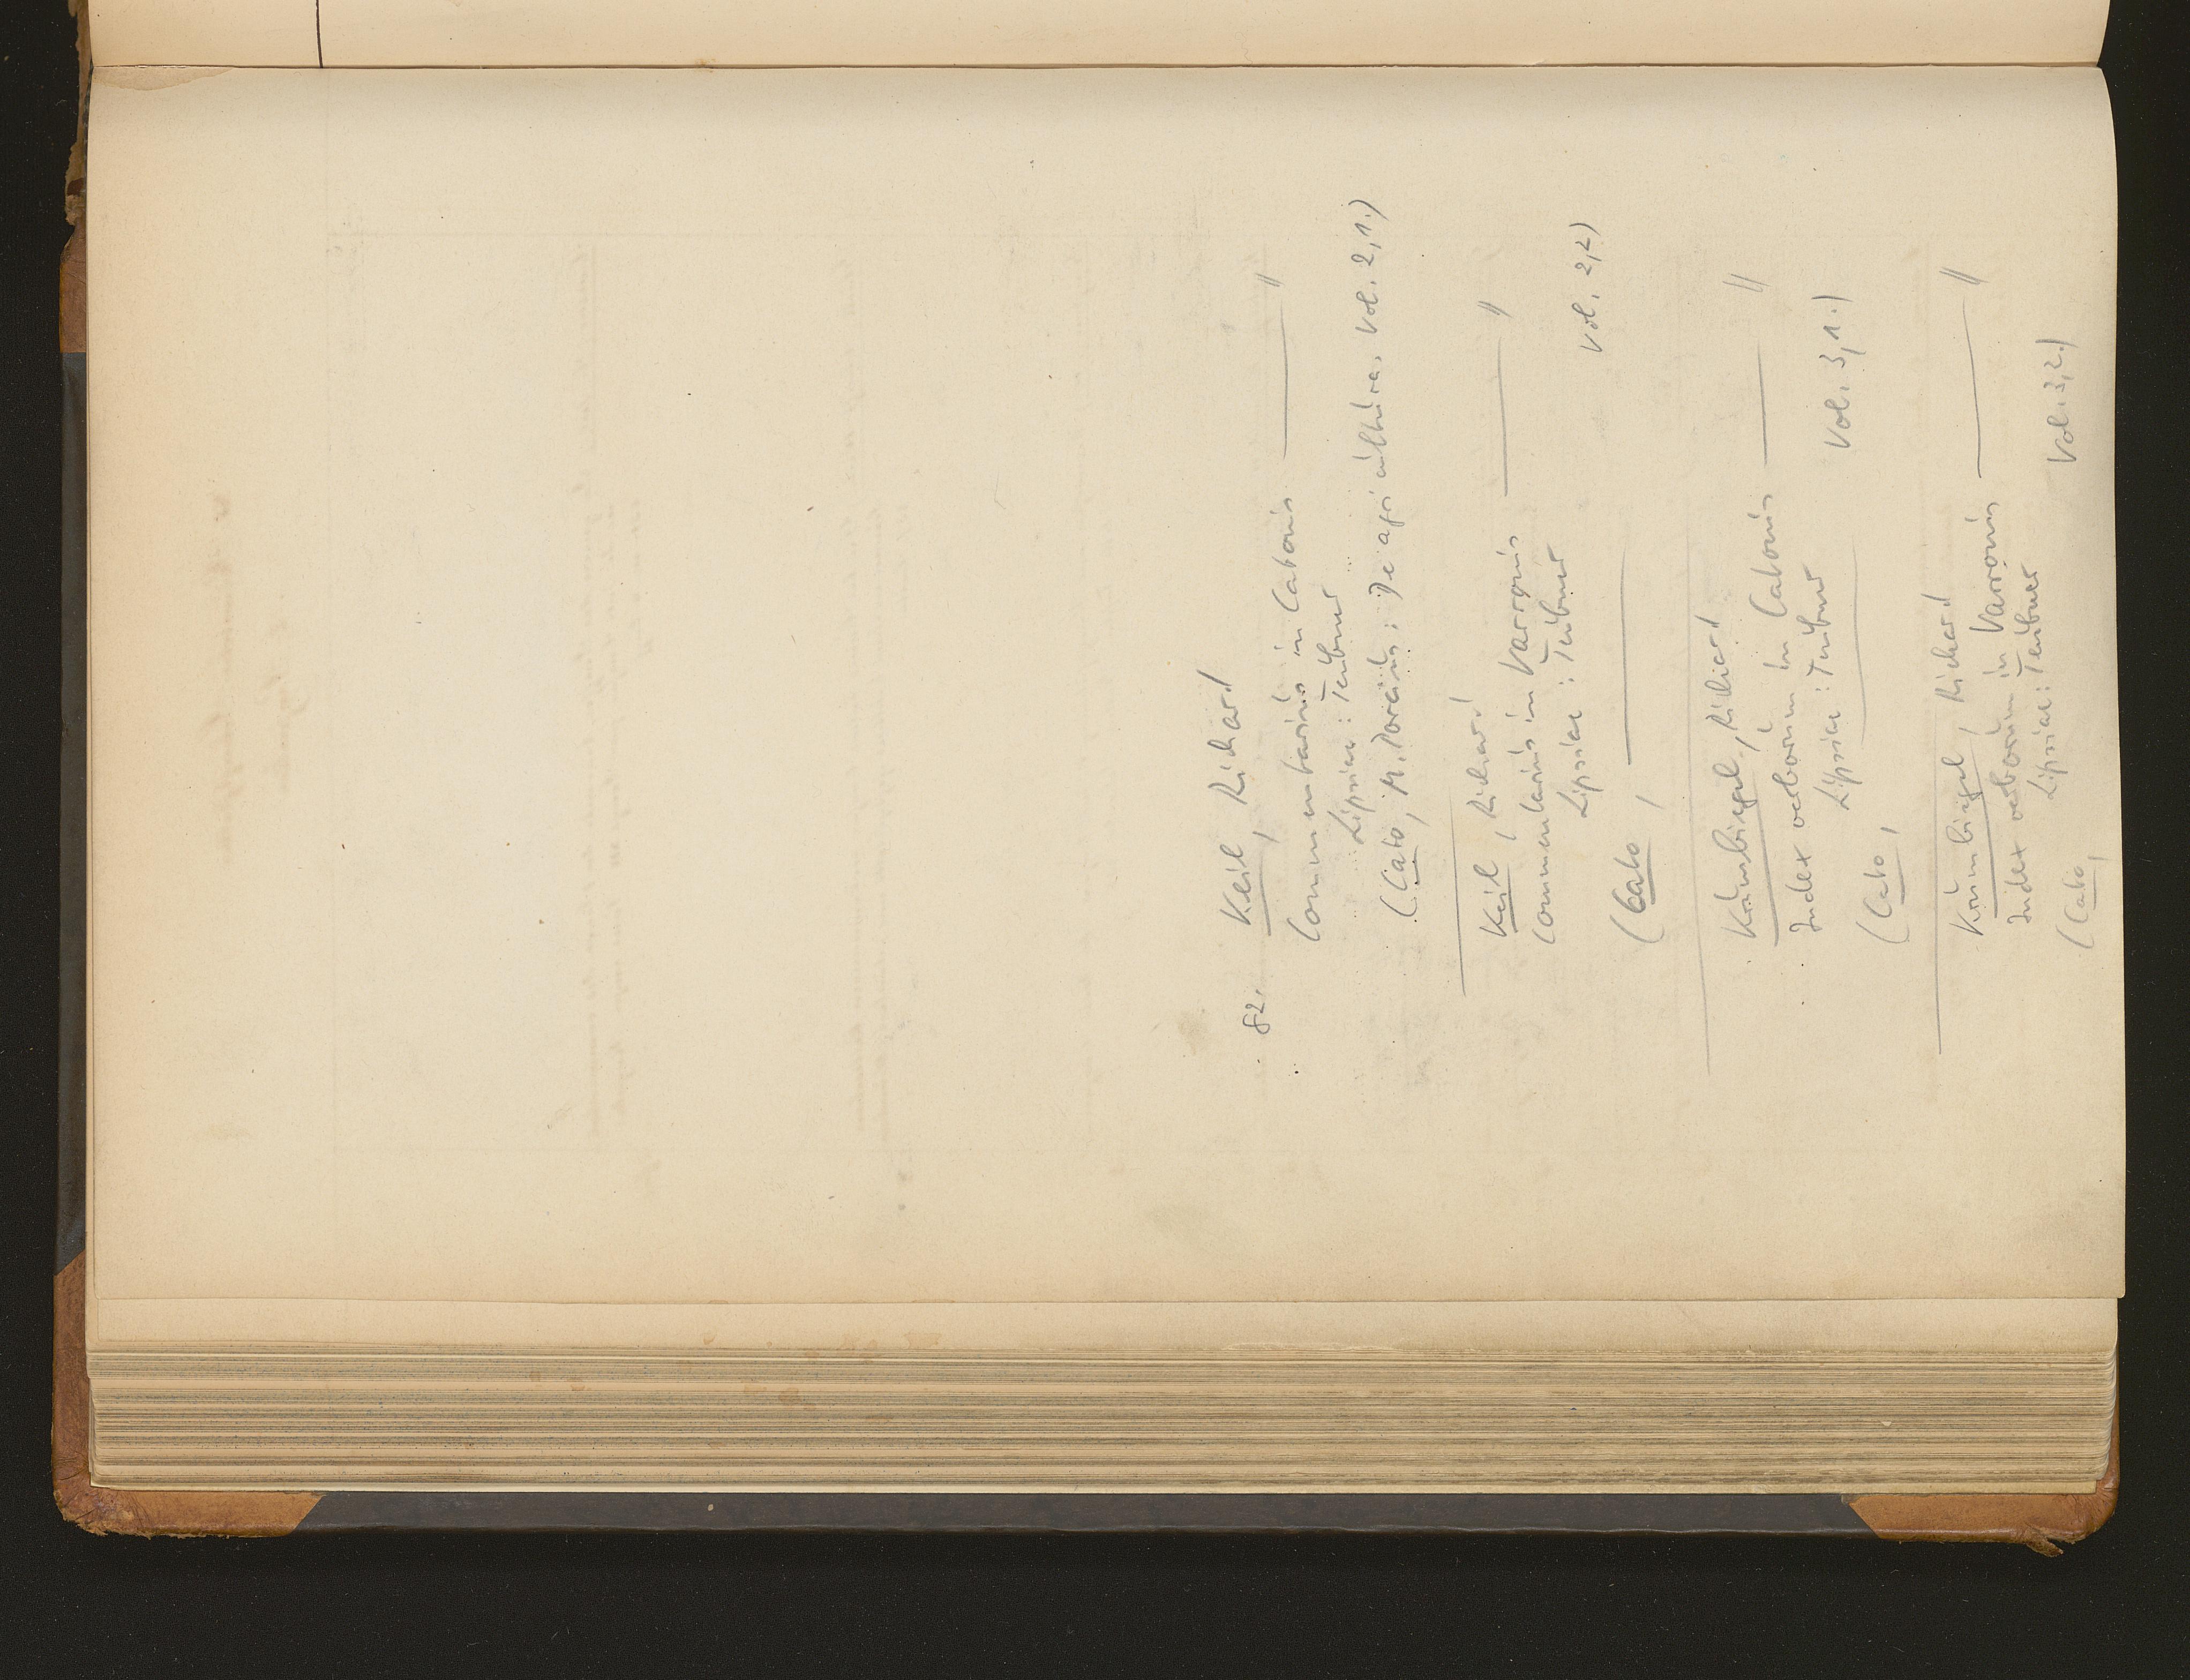 82. Keil, Richard
Commentarius in Catonis —— "
Lipsiae: Teubner
(Cato, M. Porcius: De agri cultura. Vol. 2,1.)
Keil, Richard
Commentarius in Varronis —— "
Lipsiae: Teubner
(Cato, —— Vol. 2,2)
Krumbiegel, Richard
Index verborum in Catonis —— "
Lipsiae: Teubner
(Cato, —— Vol. 3,1.)
Krumbiegel, Richard
Index verborum in Varronis —— "
Lipsiae: Teubner
(Cato, Vol. 3,2.)